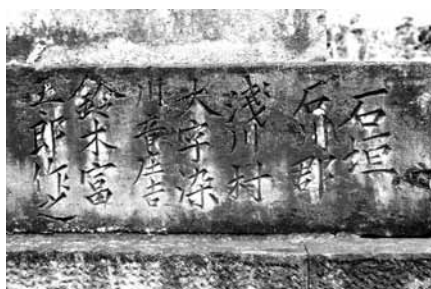 石垣
石川郡
淺川村
大字染
川
鈴木富
五郎作之